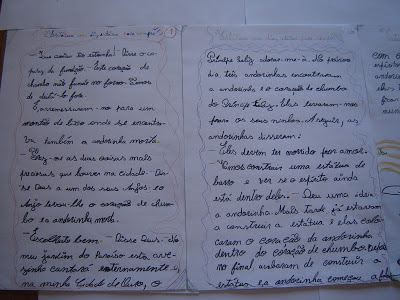 1
- Que coisa tão estranha! - Disse o ca-
pataz da fundição. - Este coração de
chumbo não fundiu no forno. Temos
de deitá-lo fora.
E arremessaram-no para um
montão de lixo onde se encontra-
va também a andorinha morta.
- Traz-me as duas coisas mais
preciosas que houver na cidade. Di-
sse Deus a um dos seus Anjos. E o
Anjo levou-lhe o coração de chum-
bo e a andorinha morta.
- Escolheste bem. - Disse Deus. - No
meu Jardim do Paraíso esta ave-
zinha cantará eternamente e,
na minha Cidade do Ouro, o
Príncipe Feliz adorar-me-á. No próximo
dia, três andorinhas encontraram
a andorinha e o coração de chumbo
do Príncipe Feliz. Elas levaram-nos
para os seus ninhos. A seguir, as
andorinhas disseram:
- Eles devem ter morrido por amor.
- Vamos construir uma estátua de
barro e ver se o espírito ainda
está dentro deles. - Deu uma ideia
a andorinha. Mais tarde já estavam
a construir a estátua e elas colo-
caram o coração da andorinha
dentro do coração de chumbo. Depois
no final, acabaram de construir a
estátua e a andorinha começou a
com o